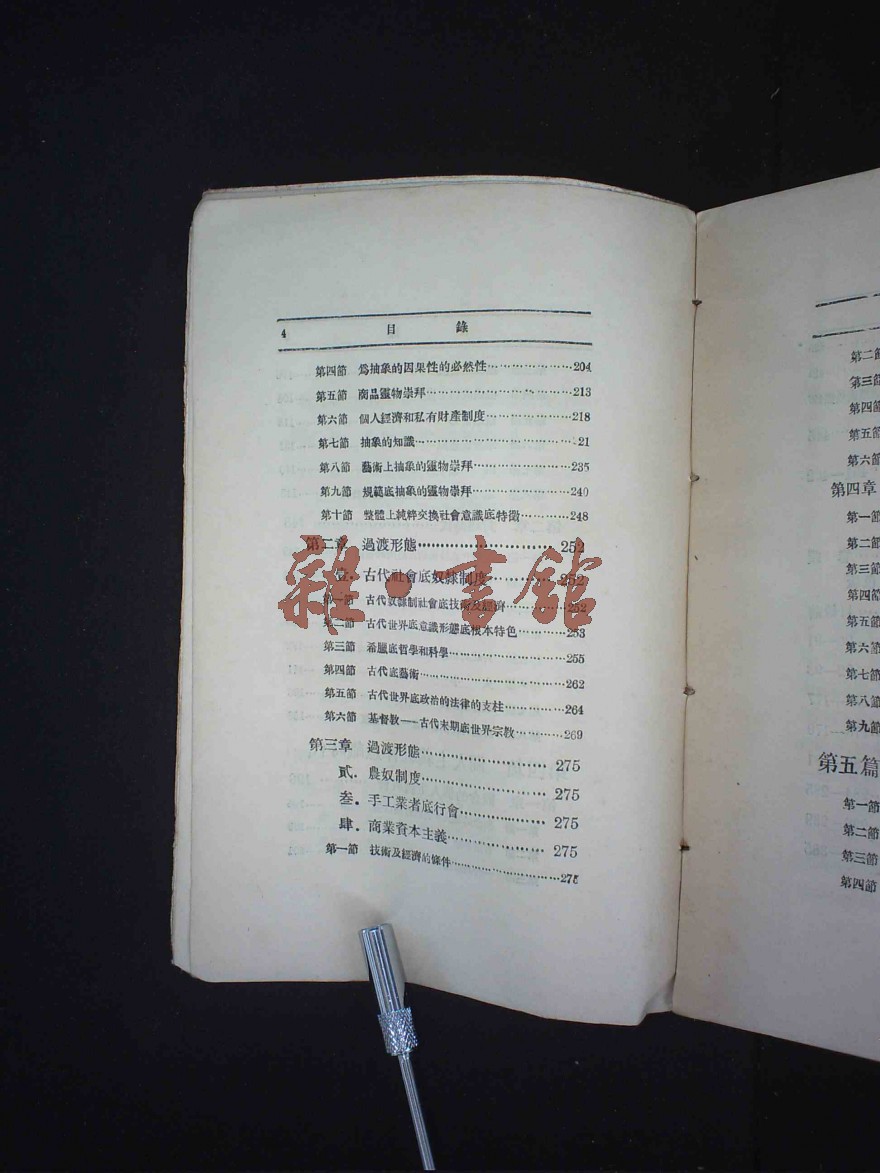 4 目錄
第四節 爲抽象的因果性的必然性………………204
第五節 商品靈物崇拜………………213
第六節 個人經濟和私有財產制度………………218
第七節 抽象的知識………………21
第八節 藝術上抽象的靈物崇拜………………235
第九節 規範底抽象的靈物崇拜………………240
第十節 整體上純粹交換社會意識底特徵………………248
第二章 過渡形態………………252
壹. 古代社會底奴隸制度………………252
第一節 古代奴隸制社會底技術及經濟………………252
第二節 古代世界底意識形態底根本特色………………253
第三節 希臘底哲學和科學………………255
第四節 古代底藝術………………262
第五節 古代世界底政治的法律的支柱………………264
第六節 基督教——古代末期底世界宗教………………269
第三章 過渡形態………………275
貳. 農奴制度………………275
叁. 手工業者底行會………………275
肆. 商業資本主義………………275
第一節 技術及經濟的條件………………275
雜·書館
第二節
第三節
第四節
第五節
第六節
第四章
第一節
第二節
第三節
第四節
第五節
第六節
第七節
第八節
第九節
第五篇
第一節
第二節
第三節
第四節